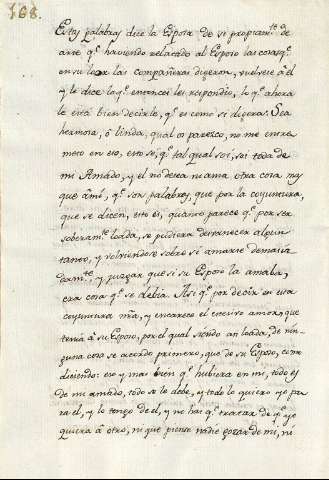 168.
Estas palabras dice la Esposa de si propiam.te de
arte q.e haviendo relatado al Esposo las cosas q.e
en su loor las compañeras dijeron, vuelvese á él
y le dice lo q.e entonces les respondio, lo q.e ahora
le está bien decirle, q.e es como si dijera: Sea
hermosa, ó linda, qual os parezco, no me entre
meto en eso, esto sé, q.e tal qual soi, soi toda de
mi Amado, y el no desea ni ama otra cosa mas
que á mi, q.e son palabras, que por la coyuntura,
que se dicen, esto es, quando parece q.e por ser
soberam.te loada, se pudiera desvanecer algun
tanto, y volviendo sobre si amarse demasia
dam.te, y juzgar que si su Esposo la amaba,
era cosa q.e se debia. Asi q.e por decir en esta
coyuntura mia, y encarece el excesivo amor, que
tenia á su Esposo, por el qual siendo asi loada, de nin-
guna cosa se acordo primero, que de su Esposo, como
diciendo: eso y mas bien q.e hubiera en mi, todo es
de mi amado, todo se lo debe, y todo lo quiero yo pa
ra el, y lo tengo de el, y no hai q.e tratar de q.e yo
quiera á otro, ni que piense nadie gozar de mi, ni